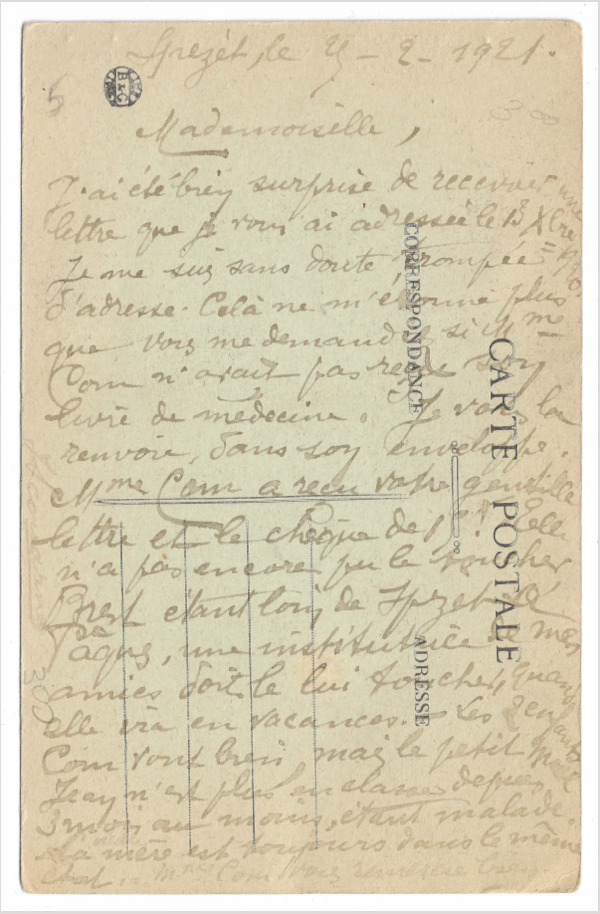 Spezet, le 25 - 2 - 1921.
B & G
Mademoiselle,
J'ai été bien surprise de recevoir une
lettre que je vous ai adressée le 18 Xbre
Je me suis sans doute trompée
d'adresse. Celà ne m'étonne plus
que vous me demandez si Mme
Com n'avait pas reçu son
livre de médecine. Je vous la
renvoie, dans son enveloppe.
Mme Com a reçu votre gentille
lettre et le chèque de Elle
n'a pas encore pu le toucher
Brest étant loin de Spezet. A
Pâques, une institutrice de mes
amies doit le lui toucher, quand
elle ira en vacances. - Les 2 enfants
Com vont bien mais le petit
Jean n'est plus en classe depuis
3 mois au moins, étant malade.
La mère est toujours dans le même
état. - Mme Com vous remercie bien.
300
300
CARTE POSTALE
CORRESPONDANCE
ADRESSE